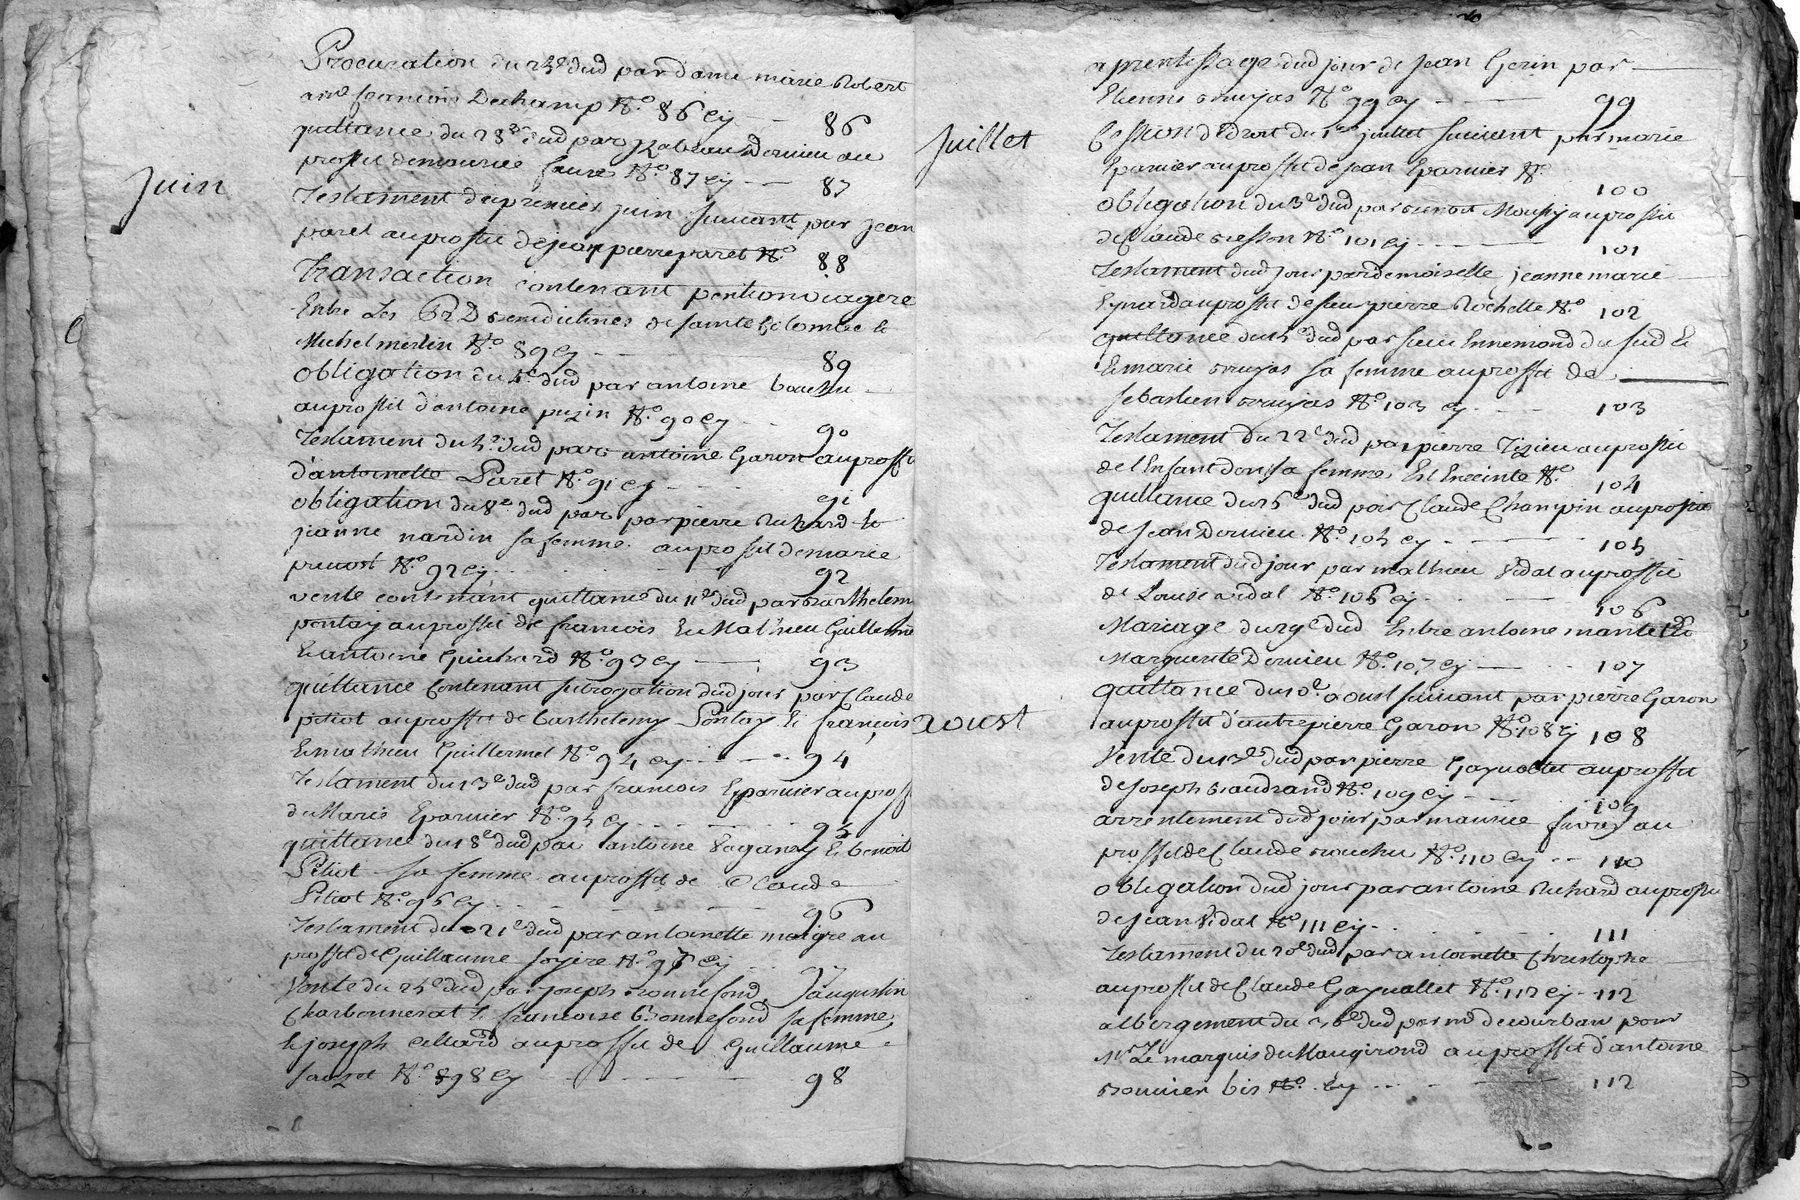 Procuration du 24e dud par dame marie Robert
a me francois Dechamp No. 86 Cy 86
quittance du 28e dud par Izabeau Dervieu au
proffit de maurice faure No. 87 Cy 87
Juin
Testament du premier juin suivant par jean
paret au proffit de jean pierre paret No. 88
Transaction contenant pention viagere
Entre Les RRD Benedictines de sainte Colombe Et
Michel merlin No. 89 Cy 89
obligation du 4e dud par antoine bouchu
au proffit d'antoine puzin No. 90 Cy 90
Testament du 5e dud par antoine Garon au proffit
d'antoinette Paret No. 91 Cy 91
obligation du 8e dud par par pierre Richard Et
jeanne nardin sa femme au proffit de marie
prevost No. 92 Cy 92
vente contenant quittance du 11e dud par Barthelemy
pontay au proffit de francois Et Mathieu Guillermet
Et antoine Guichard No. 93 Cy 93
quittance contenant subrogation dud jour par Claude
pitiot au proffit de barthelemy Pontay Et françois
Et mathieu Guillermet No. 94 Cy 94
Testament du 13e dud par francois Eparvier au proffit
de Marie Eparvier No. 95 Cy 95
quittance du 18e dud par antoine Et benoit
Pitiot sa femme au proffit de Claude
Pitiot No. 96 Cy 96
Testament du 21e dud par antoinette maigre au
proffit de Guillaume No. 97 Cy 97
Vente du 24e dud par joseph Bonnefond, augustin
Charbonnerat Et francoise Bonnefond sa femme,
Et joseph au proffit de Guillaume
No. 98 Cy 98
aprentissage dud jour de Jean Gerin par
Etienne Bruyas No. 99 Cy 99
Juillet
Cession de droit du 1er juillet suivant par marie
Eparvier au proffit de jean Eparvier No. 100
obligation du 3e dud par benoit Mousy au proffit
de Claude Besson No. 101 Cy 101
Testament dud jour par demoiselle jeanne marie
Eynard au proffit de sieur pierre Rochette No. 102
quittance du 15e dud par sieur Ennemond du sud Et
Et marie Bruyas sa femme au proffit de
sebastien Bruyas No. 103 Cy 103
Testament du 22e dud par pierre Tizieu au proffit
de l'Enfant dont sa femme Est Enceinte No. 104
quittance du 25e dud par Claude Champin au proffit
de jean Dervieu No. 105 Cy 105
Testament dud jour par mathieu vidal au proffit
de Louise vidal No. 106 Cy 106
Mariage du 29e dud Entre antoine mantel Et
Marguerite Dervieu No. 107 Cy 107
aoust
quittance du 10e aoust suivant par pierre Garon
au proffit d'autre pierre Garon No. 108 Cy 108
Vente du 13e dud par pierre Gayvallet au proffit
de joseph Baudrand No. 109 Cy 109
arrentement dud jour par maurice au
proffit de Claude Bouchu No. 110 Cy 110
obligation dud jour par antoine Richard au proffit
de jean Vidal No. 111 Cy 111
Testament du 20e dud par antoinette Christophe
au proffit de Claude Gayvallet No. 112 Cy 112
albergement du 26e dud par mr de pour
Mr Le marquis de Maugirond au proffit d'antoine
bis No. Cy 112